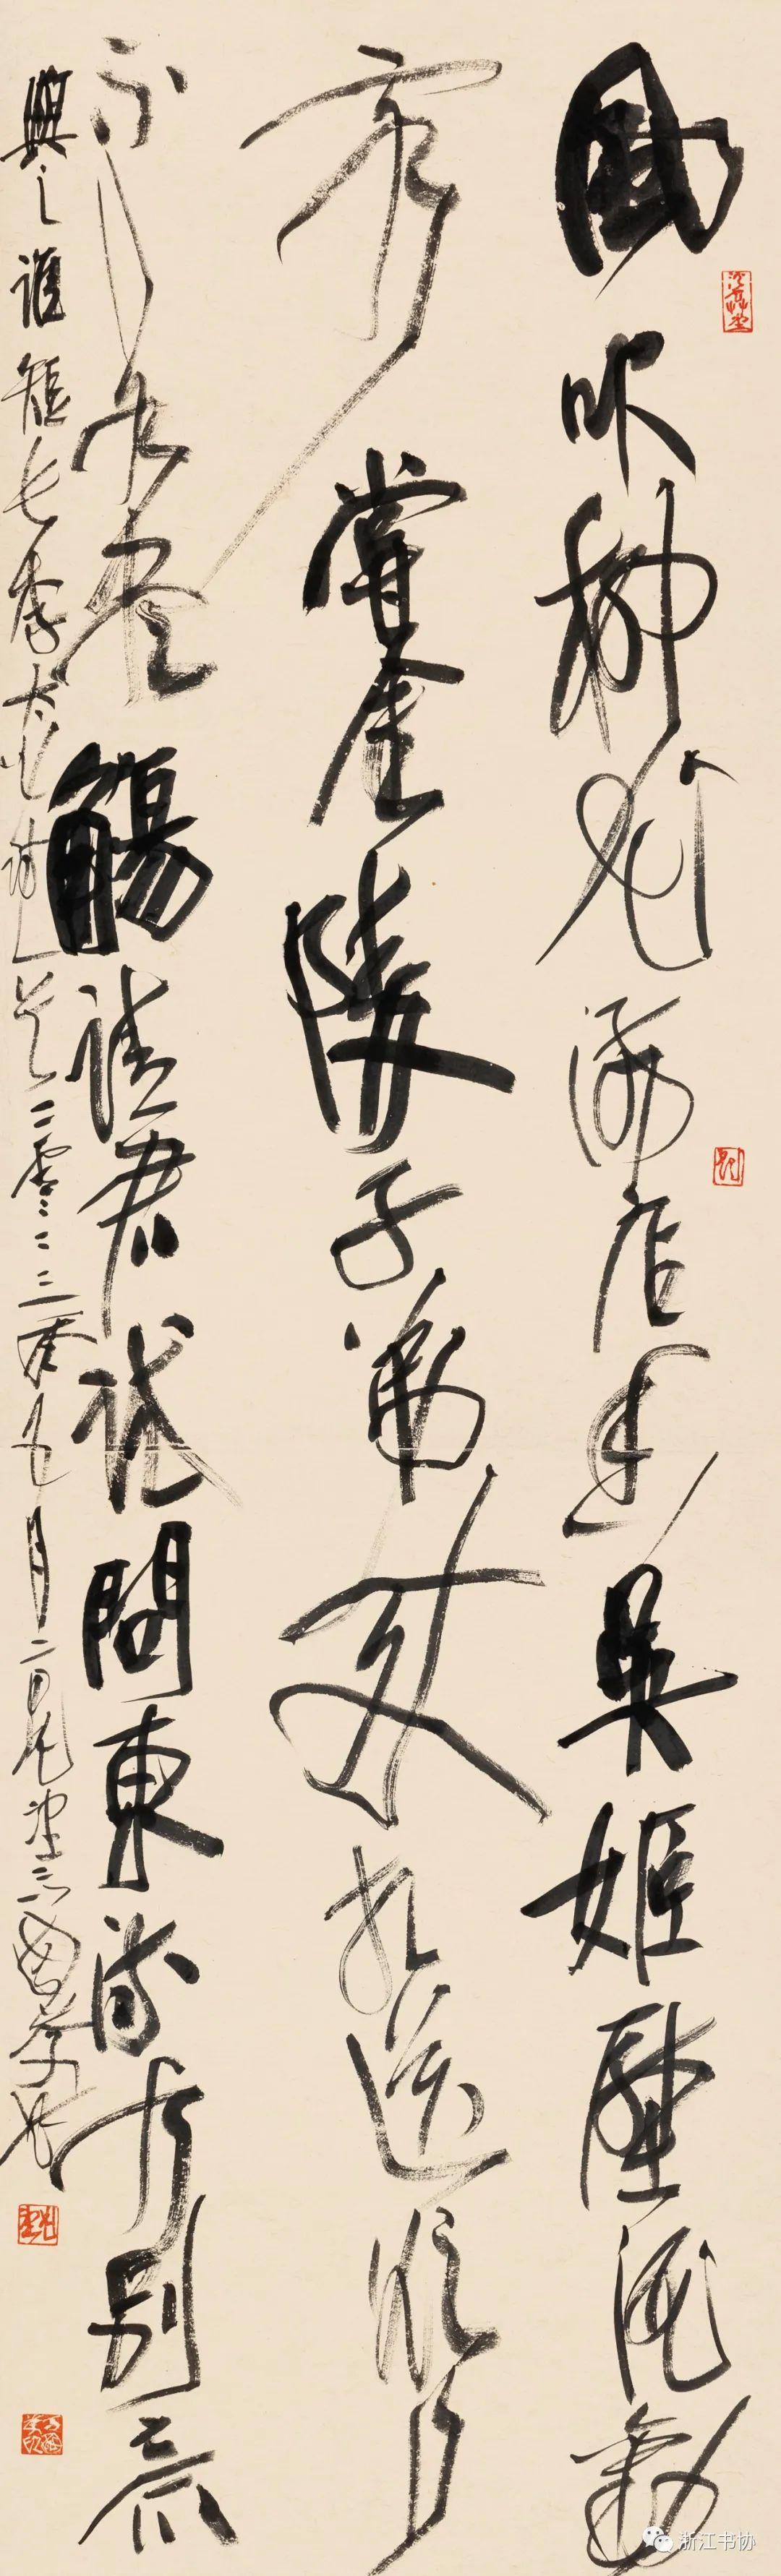 風吹柳花滿店香吳姬壓酒勸
客嘗金陵子弟来相送欲行
不行各盡觴請君試問東流水別意
與之誰短長李太白詩二零二三年月
浙江书协